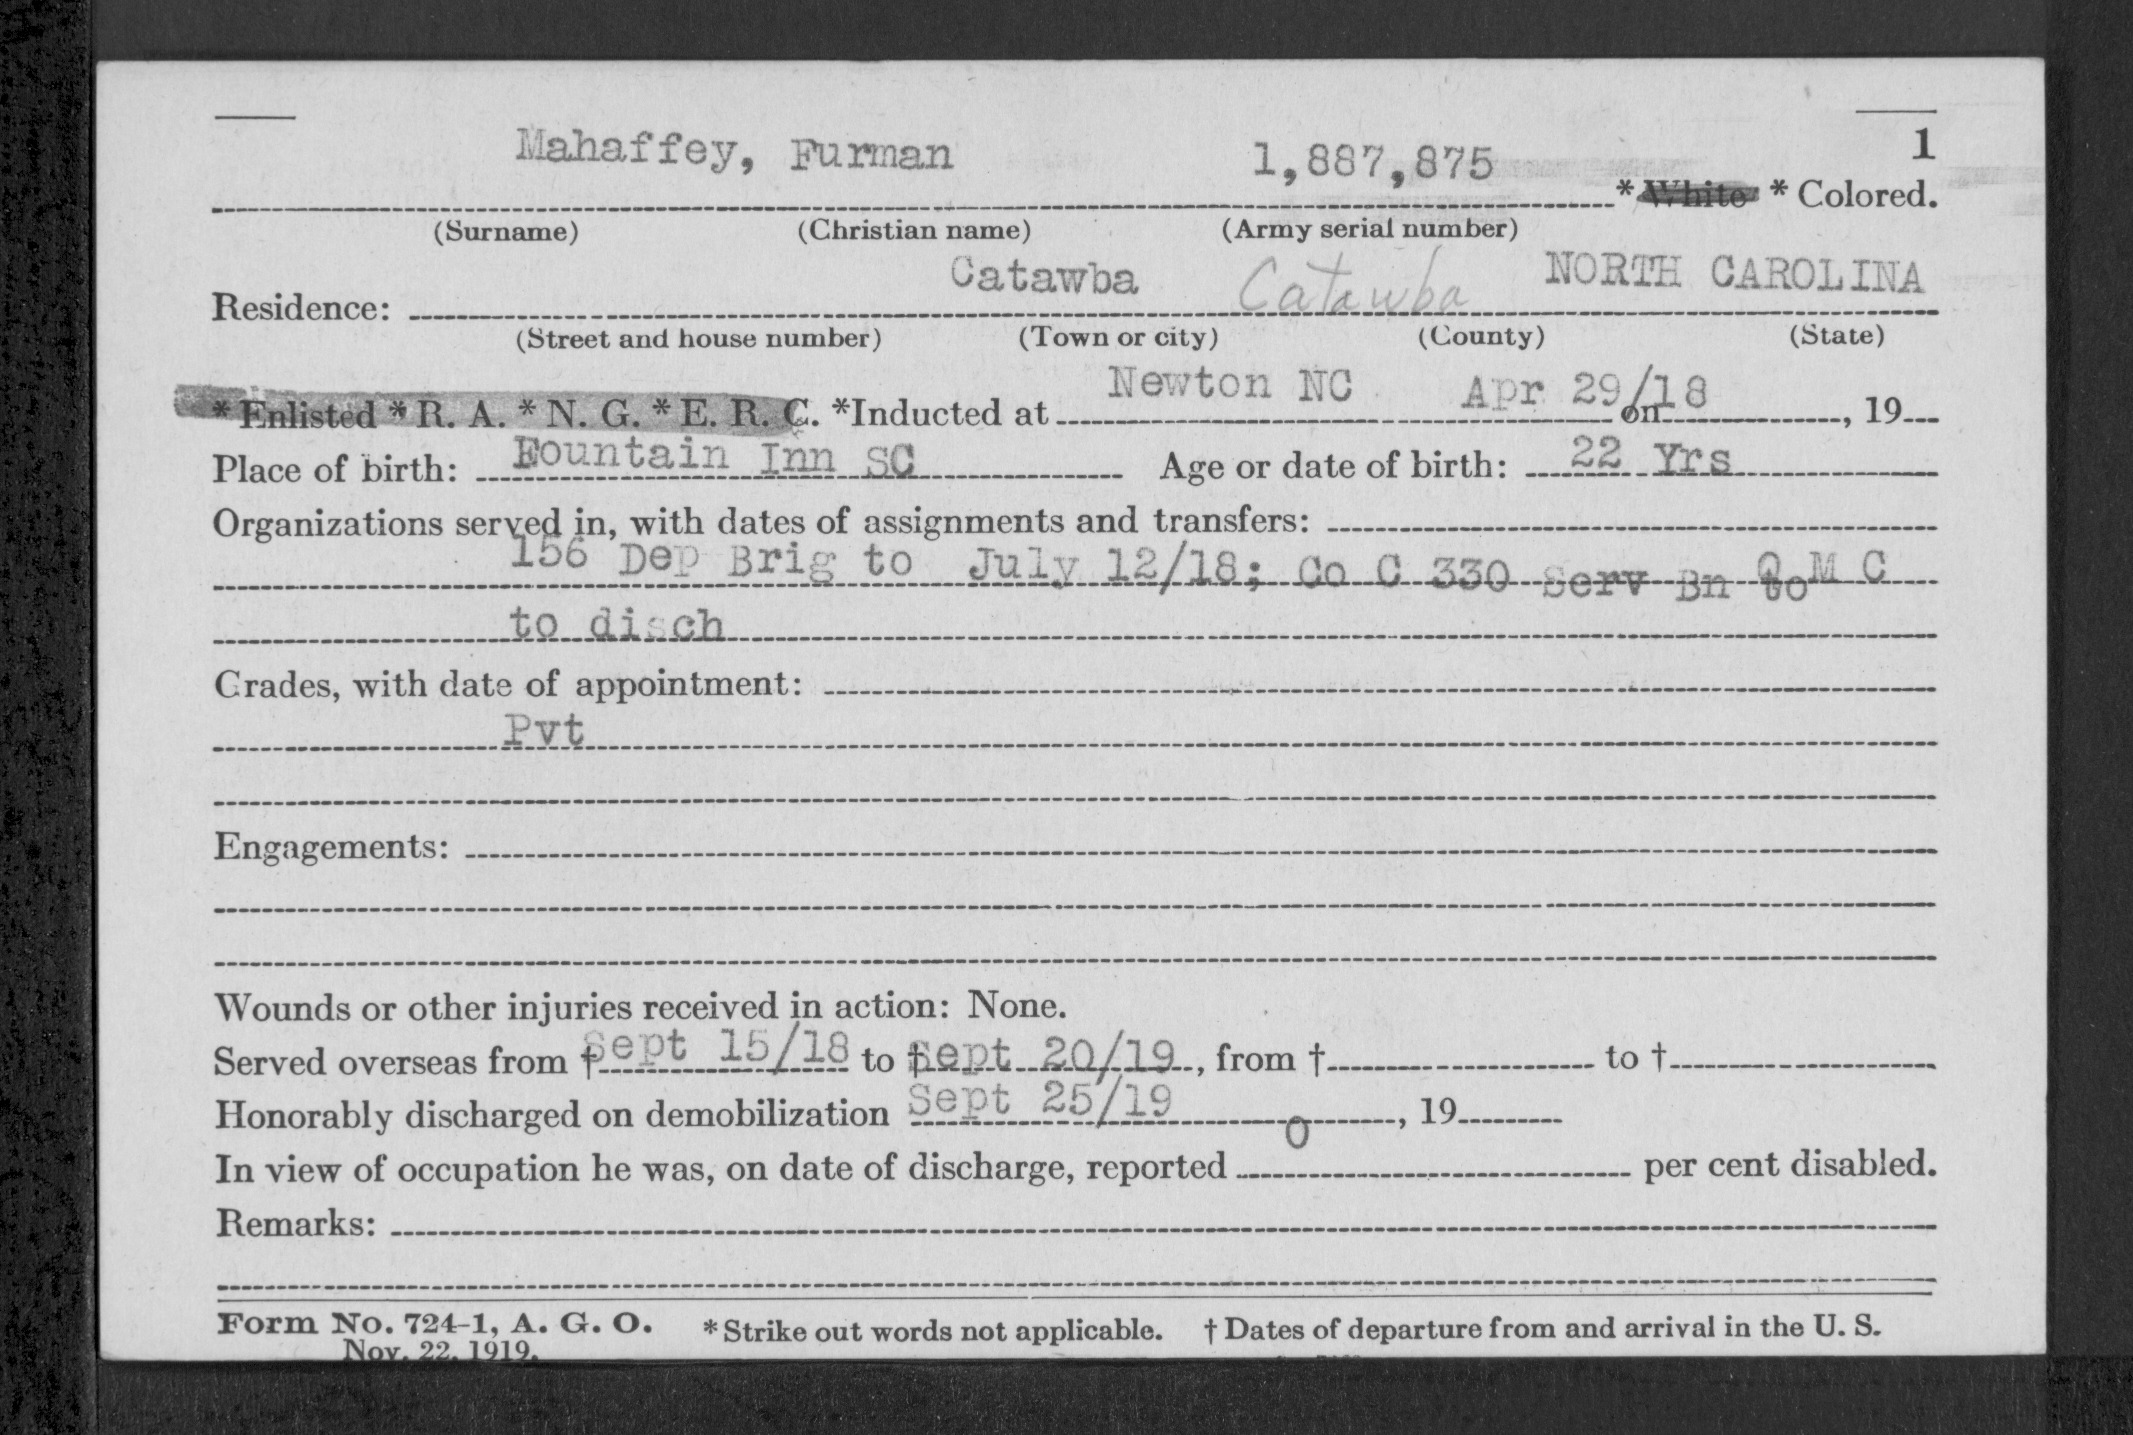 Mahaffey, Furman 1,887,875 1
*White *Colored.
(Surname) (Christian name) (Army serial number)
Residence: Catawba Catawba NORTH CAROLINA
(Street and house number) (Town or city) (County) (State)
*Enlisted *R. A. *N. G. *E. R. C. *Inducted at Newton NC Apr 29/18 on , 19
Place of birth: Fountain Inn SC Age or date of birth: 22 Yrs
Organizations served in, with dates of assignments and transfers:
156 Dep Brig to July 12/18; Co C 330 Serv Bn Q M C
to disch
Grades, with date of appointment:
Pvt
Engagements:
Wounds or other injuries received in action: None.
Served overseas from † Sept 15/18 to † Sept 20/19, from † to †
Honorably discharged on demobilization Sept 25/19 , 19
In view of occupation he was, on date of discharge, reported 0 per cent disabled.
Remarks:
Form No. 724-1, A. G. O. *Strike out words not applicable. † Dates of departure from and arrival in the U. S.
Nov. 22, 1919.